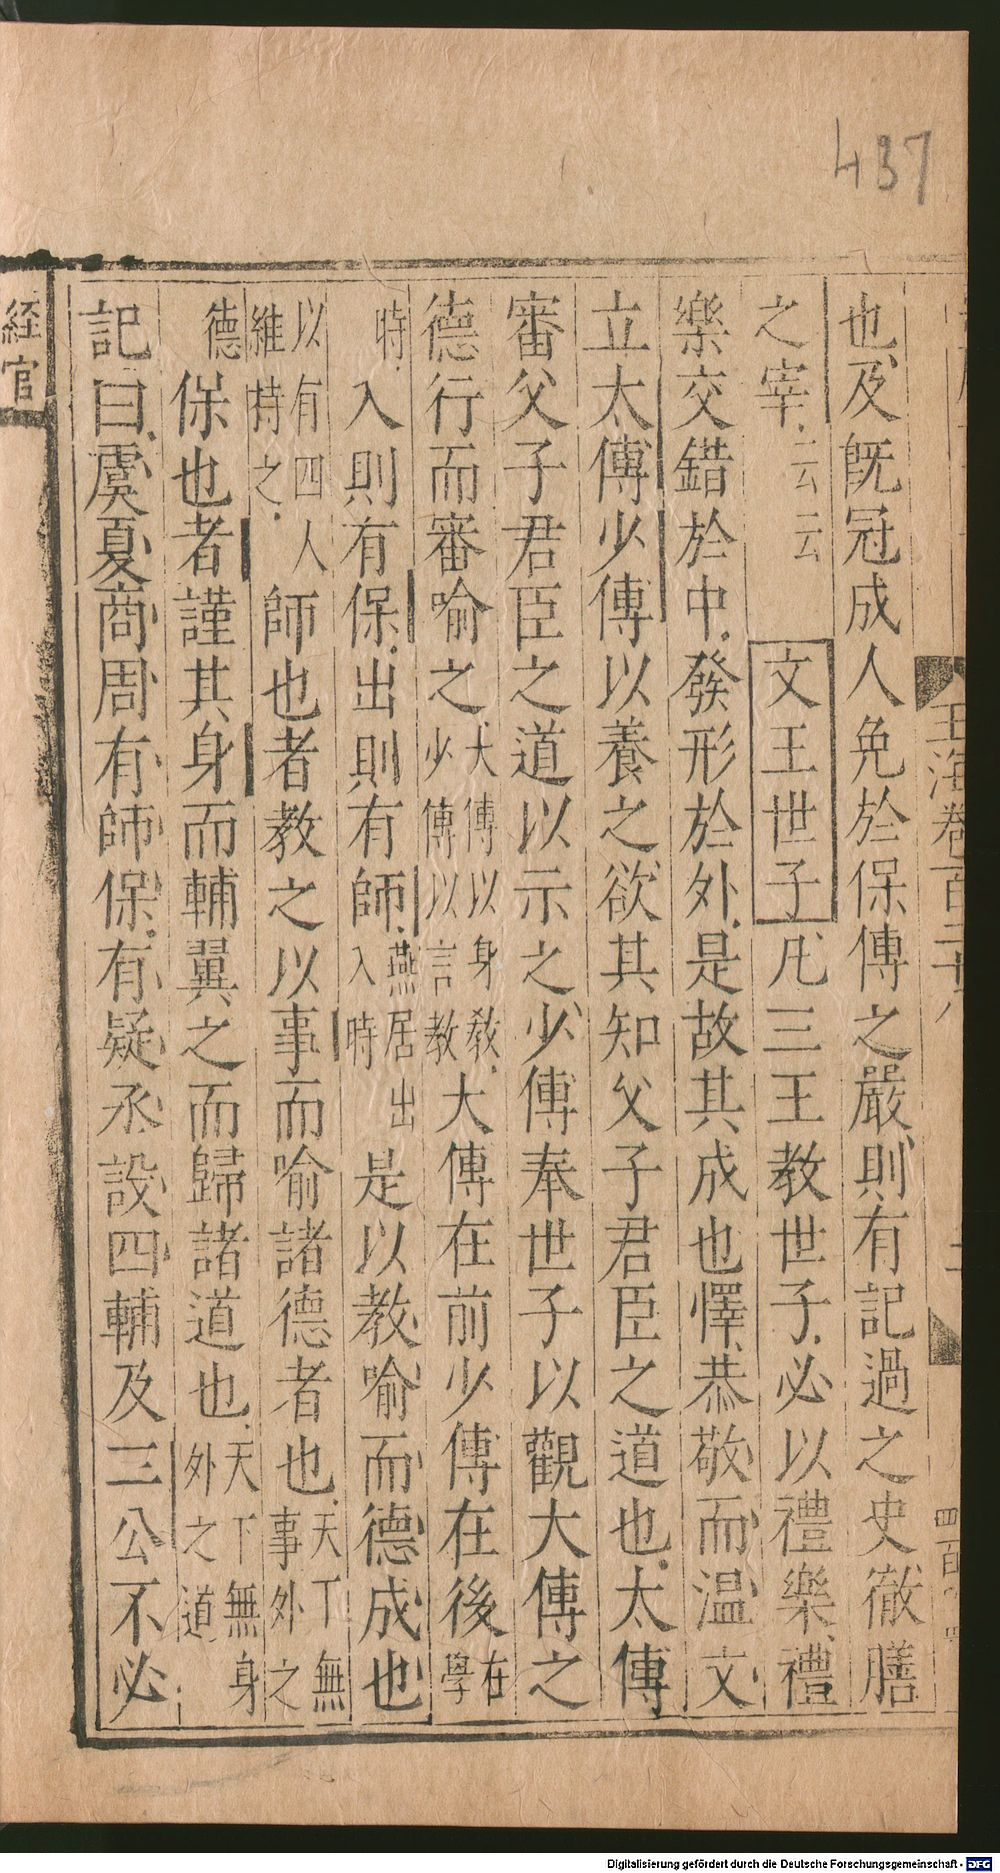 437
玉海卷百二十八
也及既冠成人免於保傅之嚴則有記過之史徹膳
之宰云云 文王世子凡三王教世子必以禮樂禮
樂交錯於中發形於外是故其成也懌恭敬而温文
立太傅少傅以養之欲其知父子君臣之道也太傅
審父子君臣之道以示之少傅奉世子以觀大傅之
德行而審喻之大傅以身教少傅以言教大傅在前少傅在後在學
時入則有保出則有師燕居出入時是以教喻而德成也
以有四人維持之師也者教之以事而喻諸德者也天下無事外之
德保也者謹其身而輔翼之而歸諸道也天下無身外之道
記曰虞夏商周有師保有疑丞設四輔及三公不必
経官
Digitalisierung gefördert durch die Deutsche Forschungsgemeinschaft - DFG